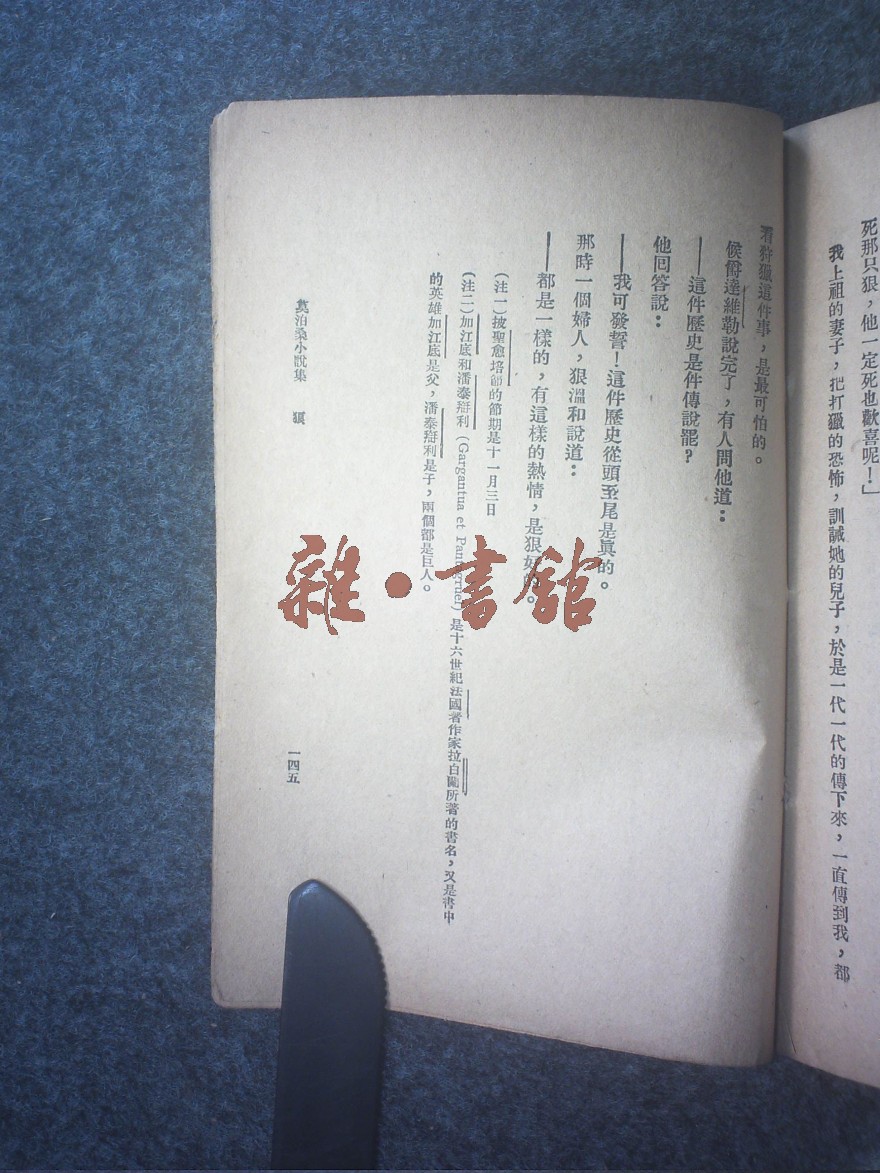 死那只狠，他一定死也歡喜呢！」
我上祖的妻子，把打獵的恐怖，訓誡她的兒子，於是一代一代的傳下來，一直傳到我，都
看狩獵這件事，是最可怕的。
侯爵達維勒說完了，有人問他道：
——這件歷史是件傳說罷？
他回答說：
——我可發誓！這件歷史從頭至尾是眞的。
那時一個婦人，狠溫和說道：
——都是一樣的，有這樣的熱情，是狠好的。
（注一）披聖愈培節的節期是十一月三日
（注二）加江底和潘泰舜利（Gargantua et Pantagruel）是十六世紀法國著作家拉白關所著的書名，又是書中
的英雄加江底是父，潘泰舜利是子，兩個都是巨人。
莫泊桑小說集　狠
一四五
雜·書館